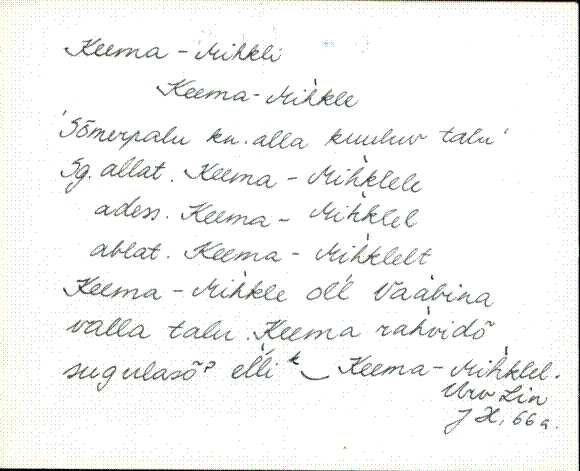 Keema - Mihkli
Keema - Mihkle
'Sõmerpalu kn. alla kuuluv talu'
Sg. allat. Keema - Mihklele
adess. Keema - Mihklel
ablat. Keema - Mihklelt
Keema - Mihkle oĺl Vaabina
valla talu. Keema rahvidõ
sugulasõˀ eĺli k‿Keema - Mihklel.
Urv Lin
J X, 66 a.